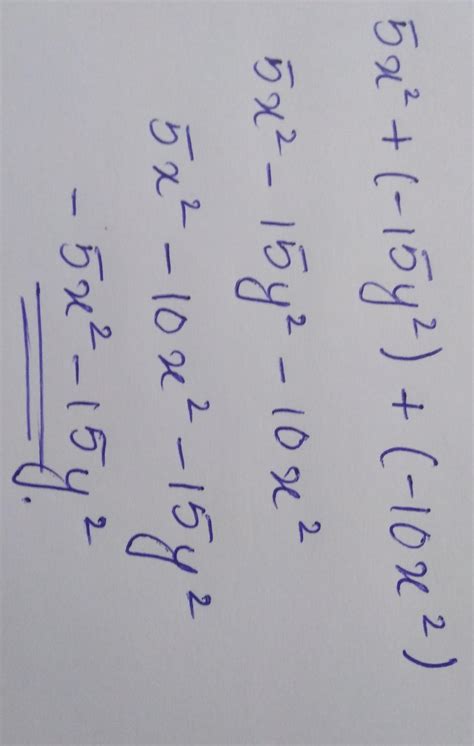 5x² + (-15y²) + (-10x²)
5x² - 15y² - 10x²
5x² - 10x² - 15y²
- 5x² - 15y²